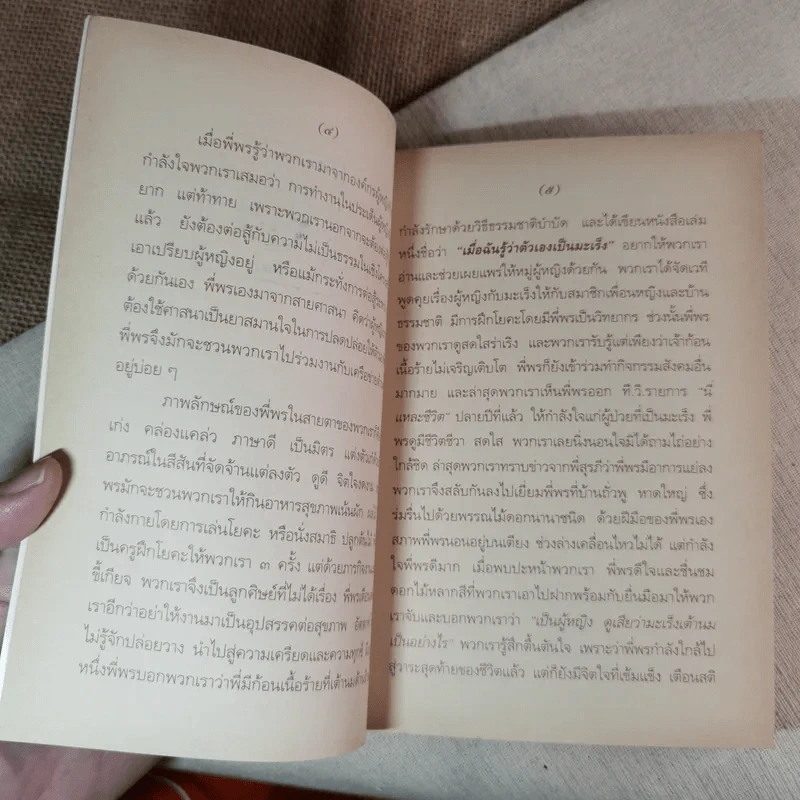 (๔)
เมื่อพี่พรรู้ว่าพวกเรามาจากองค์กรผู้หญิง
กำลังใจพวกเราเสมอว่า การทำงานในประเด็นผู้หญิง
ยาก แต่ท้าทาย เพราะพวกเรานอกจากจะต้อง
แล้ว ยังต้องต่อสู้กับความไม่เป็นธรรมในเชิง
เอาเปรียบผู้หญิงอยู่ หรือแม้กระทั่งการต่อสู้
ด้วยกันเอง พี่พรเองมาจากสายศาสนา คิดว่า
ต้องใช้ศาสนาเป็นยาสมานใจในการปลดปล่อยให้
พี่พรจึงมักจะชวนพวกเราไปร่วมงานกับเครือข่าย
อยู่บ่อย ๆ
ภาพลักษณ์ของพี่พรในสายตาของพวกเรา
เก่ง คล่องแคล่ว ภาษาดี เป็นมิตร แต่งตัว
อาภรณ์ในสีสันที่จัดจ้านแต่ลงตัว ดูดี จิตใจ
พรมักจะชวนพวกเราให้กินอาหารสุขภาพเน้นผัก
กำลังกายโดยการเล่นโยคะ หรือนั่งสมาธิ
เป็นครูฝึกโยคะให้พวกเรา ๓ ครั้ง แต่ด้วยภารกิจ
ขี้เกียจ พวกเราจึงเป็นลูกศิษย์ที่ไม่ได้เรื่อง
เราอีกว่าอย่าให้งานมาเป็นอุปสรรคต่อสุขภาพ
ไม่รู้จักปล่อยวาง นำไปสู่ความเครียดและความทุกข์
หนึ่งพี่พรบอกพวกเราว่าพี่มีก้อนเนื้อร้ายที่เต้านม
(๕)
กำลังรักษาด้วยวิธีธรรมชาติบำบัด และได้เขียนหนังสือเล่ม
หนึ่งชื่อว่า “เมื่อฉันรู้ว่าตัวเองเป็นมะเร็ง” อยากให้พวกเรา
อ่านและช่วยเผยแพร่ให้หมู่ผู้หญิงด้วยกัน พวกเราได้จัดเวที
พูดคุยเรื่องผู้หญิงกับมะเร็งให้กับสมาชิกเพื่อนหญิงและบ้าน
ธรรมชาติ มีการฝึกโยคะโดยมีพี่พรเป็นวิทยากร ช่วงนั้นพี่พร
ของพวกเราดูสดใสร่าเริง และพวกเรารับรู้แต่เพียงว่าเจ้าก้อน
เนื้อร้ายไม่เจริญเติบโต พี่พรก็ยังเข้าร่วมทำกิจกรรมสังคมอื่น
มากมาย และล่าสุดพวกเราเห็นพี่พรออก ที.วี.รายการ “นี่
แหละชีวิต” ปลายปีที่แล้ว ให้กำลังใจแก่ผู้ป่วยที่เป็นมะเร็ง พี่
พรดูมีชีวิตชีวา สดใส พวกเราเลยนิ่งนอนใจมิได้ถามไถ่อย่าง
ใกล้ชิด ล่าสุดพวกเราทราบข่าวจากพี่สุภีว่าพี่พรมีอาการแย่ลง
พวกเราจึงสลับกันลงไปเยี่ยมพี่พรที่บ้านถั่วพู หาดใหญ่ ซึ่ง
ร่มรื่นไปด้วยพรรณไม้ดอกนานาชนิด ด้วยฝีมือของพี่พรเอง
สภาพพี่พรนอนอยู่บนเตียง ช่วงล่างเคลื่อนไหวไม่ได้ แต่กำลัง
ใจพี่พรดีมาก เมื่อพบปะหน้าพวกเรา พี่พรดีใจและชื่นชม
ดอกไม้หลากสีที่พวกเราเอาไปฝากพร้อมกับยื่นมือมาให้พวก
เราจับและบอกพวกเราว่า “เป็นผู้หญิง ดูเสียว่ามะเร็งเต้านม
เป็นอย่างไร” พวกเรารู้สึกตื้นตันใจ เพราะว่าพี่พรกำลังใกล้ไป
สู่วาระสุดท้ายของชีวิตแล้ว แต่ก็ยังมีจิตใจที่เข้มแข็ง เตือนสติ